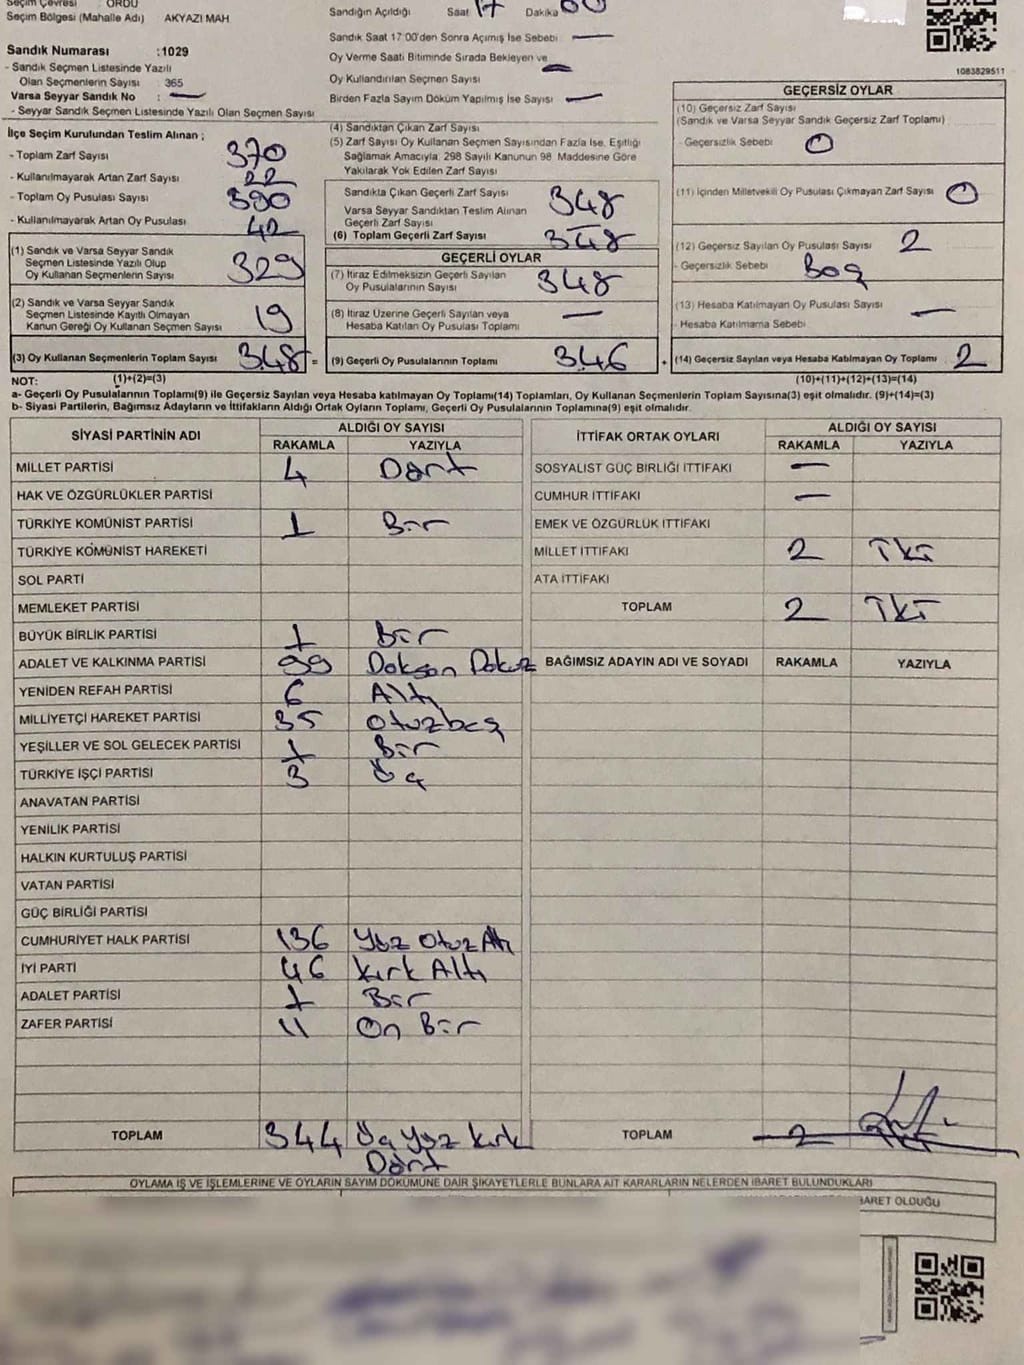 Seçim Çevresi : ORDU
Seçim Bölgesi (Mahalle Adı) AKYAZI MAH
Sandık Numarası :1029
- Sandık Seçmen Listesinde Yazılı
Olan Seçmenlerin Sayısı : 365
Varsa Seyyar Sandık No : —
- Seyyar Sandık Seçmen Listesinde Yazılı Olan Seçmen Sayısı
Sandığın Açıldığı Saat 17 Dakika 00
Sandık Saat 17:00'den Sonra Açılmış İse Sebebi —
Oy Verme Saati Bitiminde Sırada Bekleyen ve
Oy Kullandırılan Seçmen Sayısı —
Birden Fazla Sayım Döküm Yapılmış İse Sayısı —
1083829511
İlçe Seçim Kurulundan Teslim Alınan ;
- Toplam Zarf Sayısı 370
- Kullanılmayarak Artan Zarf Sayısı 22
- Toplam Oy Pusulası Sayısı 390
- Kullanılmayarak Artan Oy Pusulası 42
(1) Sandık ve Varsa Seyyar Sandık
Seçmen Listesinde Yazılı Olup
Oy Kullanan Seçmenlerin Sayısı 329
(2) Sandık ve Varsa Seyyar Sandık
Seçmen Listesinde Kayıtlı Olmayan
Kanun Gereği Oy Kullanan Seçmen Sayısı 19
(3) Oy Kullanan Seçmenlerin Toplam Sayısı 348 =
(4) Sandıktan Çıkan Zarf Sayısı
(5) Zarf Sayısı Oy Kullanan Seçmen Sayısından Fazla İse, Eşitliği
Sağlamak Amacıyla, 298 Sayılı Kanunun 98. Maddesine Göre
Yakılarak Yok Edilen Zarf Sayısı
Sandıkta Çıkan Geçerli Zarf Sayısı 348
Varsa Seyyar Sandıktan Teslim Alınan
Geçerli Zarf Sayısı —
(6) Toplam Geçerli Zarf Sayısı 348
GEÇERLİ OYLAR
(7) İtiraz Edilmeksizin Geçerli Sayılan
Oy Pusulalarının Sayısı 348
(8) İtiraz Üzerine Geçerli Sayılan veya
Hesaba Katılan Oy Pusulası Toplamı —
(9) Geçerli Oy Pusulalarının Toplamı 346 +
GEÇERSİZ OYLAR
(10) Geçersiz Zarf Sayısı
(Sandık ve Varsa Seyyar Sandık Geçersiz Zarf Toplamı)
- Geçersizlik Sebebi 0
(11) İçinden Milletvekili Oy Pusulası Çıkmayan Zarf Sayısı 0
(12) Geçersiz Sayılan Oy Pusulası Sayısı 2
- Geçersizlik Sebebi Boş
(13) Hesaba Katılmayan Oy Pusulası Sayısı —
- Hesaba Katılmama Sebebi
(14) Geçersiz Sayılan veya Hesaba Katılmayan Oy Toplamı 2
NOT: (1)+(2)=(3) (10)+(11)+(12)+(13)=(14)
a- Geçerli Oy Pusulalarının Toplamı(9) ile Geçersiz Sayılan veya Hesaba Katılmayan Oy Toplamı(14) Toplamları, Oy Kullanan Seçmenlerin Toplam Sayısına(3) eşit olmalıdır. (9)+(14)=(3)
b- Siyasi Partilerin, Bağımsız Adayların ve İttifakların Aldığı Ortak Oyların Toplamı, Geçerli Oy Pusulalarının Toplamına(9) eşit olmalıdır.
SİYASİ PARTİNİN ADI ALDIĞI OY SAYISI
RAKAMLA YAZIYLA
MİLLET PARTİSİ 4 Dört
HAK VE ÖZGÜRLÜKLER PARTİSİ
TÜRKİYE KOMÜNİST PARTİSİ 1 Bir
TÜRKİYE KOMÜNİST HAREKETİ
SOL PARTİ
MEMLEKET PARTİSİ
BÜYÜK BİRLİK PARTİSİ 1 Bir
ADALET VE KALKINMA PARTİSİ 99 Doksan Dokuz
YENİDEN REFAH PARTİSİ 6 Altı
MİLLİYETÇİ HAREKET PARTİSİ 35 Otuzbeş
YEŞİLLER VE SOL GELECEK PARTİSİ 1 Bir
TÜRKİYE İŞÇİ PARTİSİ 3 Üç
ANAVATAN PARTİSİ
YENİLİK PARTİSİ
HALKIN KURTULUŞ PARTİSİ
VATAN PARTİSİ
GÜÇ BİRLİĞİ PARTİSİ
CUMHURİYET HALK PARTİSİ 136 Yüz Otuz Altı
İYİ PARTİ 46 Kırk Altı
ADALET PARTİSİ 1 Bir
ZAFER PARTİSİ 11 On Bir
TOPLAM 344 Üç Yüz Kırk
Dört
İTTİFAK ORTAK OYLARI ALDIĞI OY SAYISI
RAKAMLA YAZIYLA
SOSYALİST GÜÇ BİRLİĞİ İTTİFAKI —
CUMHUR İTTİFAKI —
EMEK VE ÖZGÜRLÜK İTTİFAKI
MİLLET İTTİFAKI 2 İKİ
ATA İTTİFAKI
TOPLAM 2 İKİ
BAĞIMSIZ ADAYIN ADI VE SOYADI RAKAMLA YAZIYLA
TOPLAM 2
OYLAMA İŞ VE İŞLEMLERİNE VE OYLARIN SAYIM DÖKÜMÜNE DAİR ŞİKAYETLERLE BUNLARA AİT KARARLARIN NELERDEN İBARET BULUNDUKLARI
BARET OLDUĞU